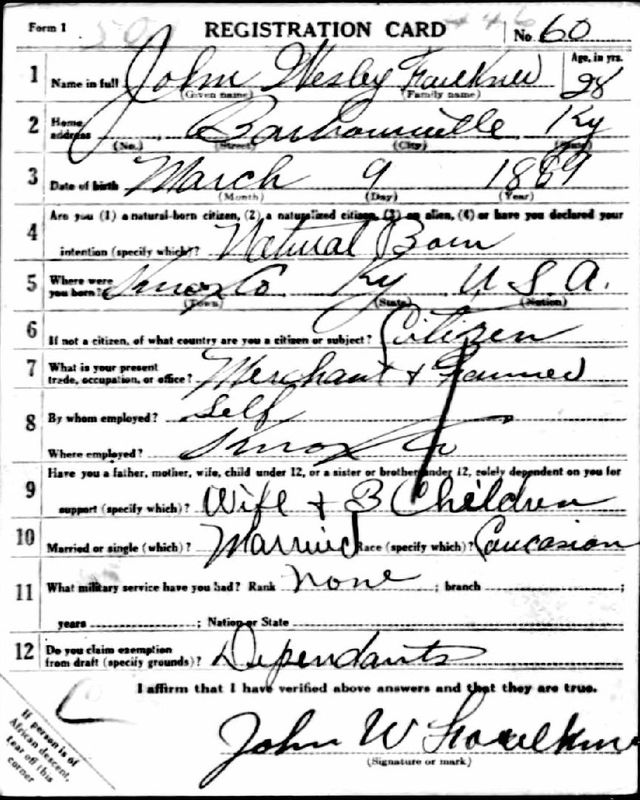 Form 1 REGISTRATION CARD No. 60
1 Name in full John Wesley Faulkner Age, in yrs. 28
(Given name) (Family name)
2 Home address Barbourville Ky
(No.) (Street) (City) (State)
3 Date of birth March 9 1889
(Month) (Day) (Year)
4 Are you (1) a natural-born citizen, (2) a naturalized citizen, (3) an alien, (4) or have you declared your
intention (specify which)? Natural Born
5 Where were you born? Knox Co Ky U. S. A.
(Town) (State) (Nation)
6 If not a citizen, of what country are you a citizen or subject? Citizen
7 What is your present trade, occupation, or office? Merchant + Farmer
8 By whom employed? Self
Where employed? Knox Co
9 Have you a father, mother, wife, child under 12, or a sister or brother under 12, solely dependent on you for
support (specify which)? Wife + 3 Children
10 Married or single (which)? Married Race (specify which)? Caucasion
11 What military service have you had? Rank none ; branch
years ; Nation or State
12 Do you claim exemption from draft (specify grounds)? Dependants
I affirm that I have verified above answers and that they are true.
John W Faulkner
(Signature or mark)
If person is of
African descent,
tear off this
corner